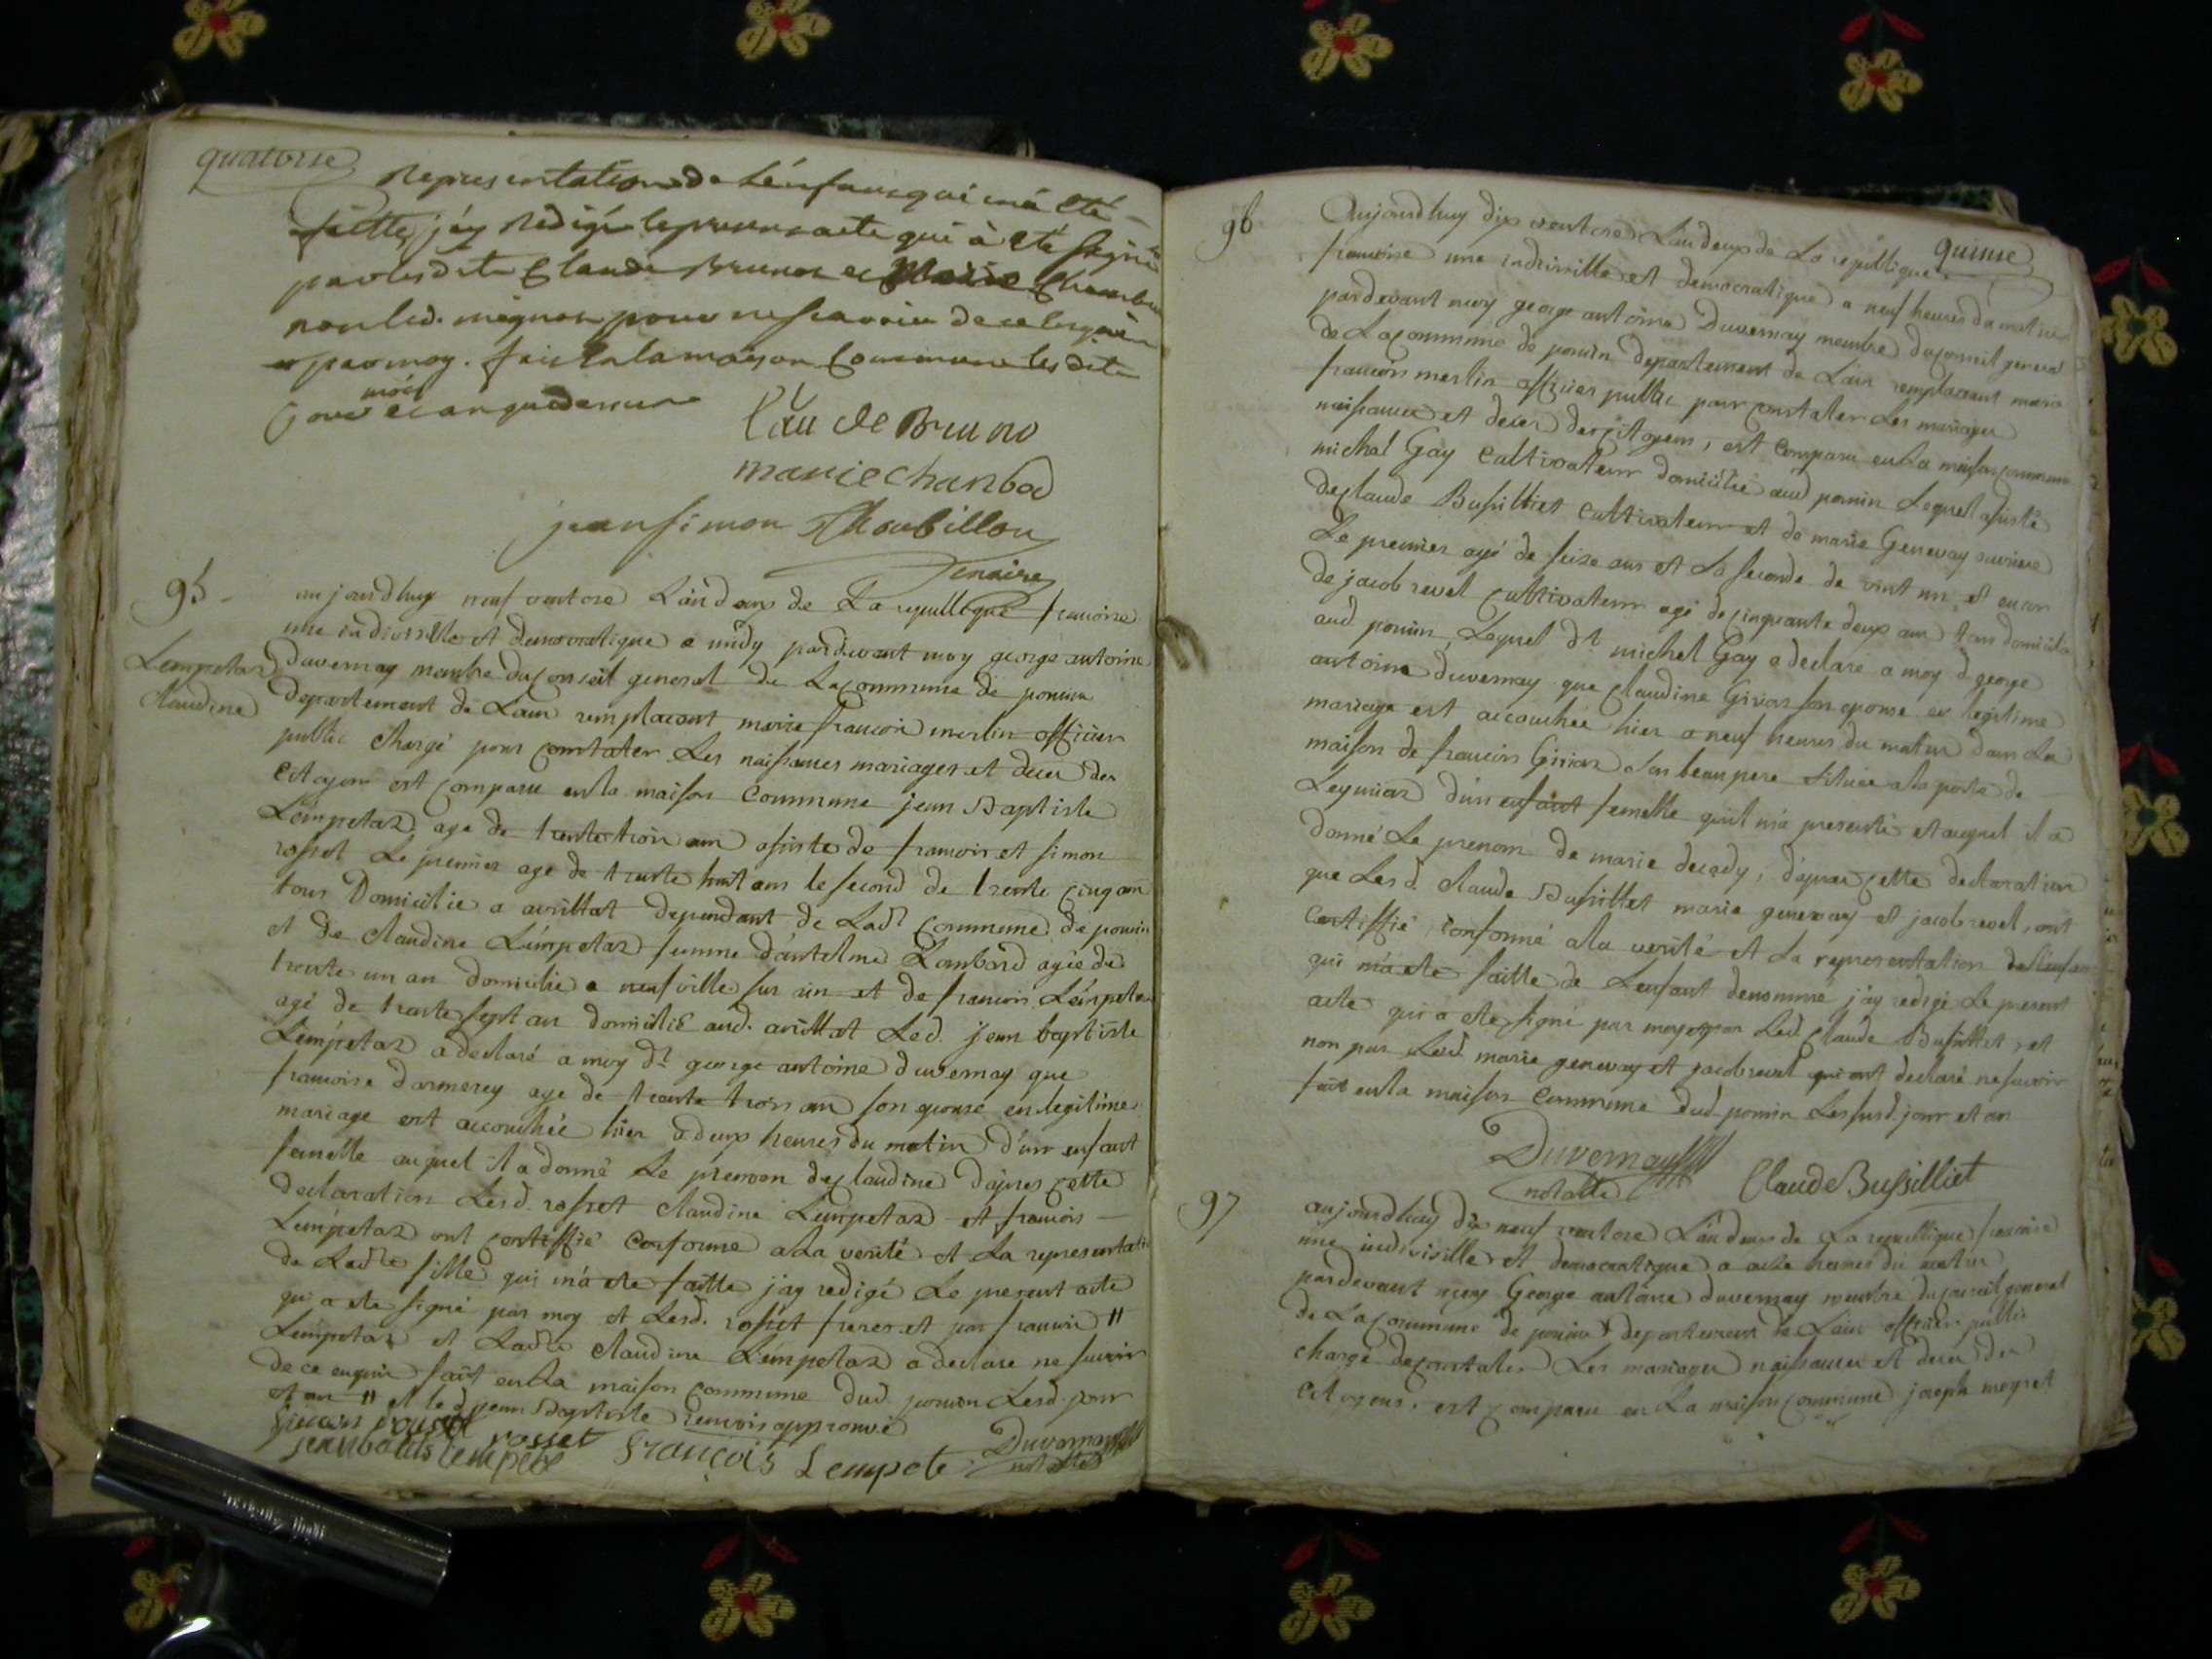 quatorse
representation de L'énfant qui m'a été
faitte, j'ay redigé le present acte qui à été signé
par lesdits Claude Brunos et Marie Chambo
non led. mignon pour ne sçavoir de ce enquis
et par moy. fait en la maison Commune les dits
jour mois et an que dessus
Clau de Bruno
marie chanbod
jean simon Thoubillou
maire
95.
Lempetaz
Claudine
aujourdhuy neuf ventose L'an deux de La republique francoise
une indivisille et democratique a midy pardevant moy george antoine
duvernay membre du conseil general de La commune de poncin
departement de L'ain remplacant marie francois merlin officier
public chargé pour constater Les naissances mariages et deces des
Citoyens est comparu en la maison Commune jean Baptiste
Lémpetaz age de trente trois ans assiste de francois et simon
rosset Le premier age de trente huit ans le second de trente cinq ans
tous Domicilie a avrillat dependant de Ladt Commune de poncin
et de claudine Lémpetaz femme d'antelme Lombard agée de
trente un an domicilie a neufville sur ain et de francois Lémpetaz
agé de trente sept an domicilié aud. avrillat Led. jean baptiste
Lémpetaz a declaré a moy dt george antoine duvernay que
francoise darmerey age de trente trois ans son epouse en legitime
mariage est accouchée hier a deux heures du matin d'un enfant
femelle auquel il a donné Le prenom de claudine d'apres cette
declaration Lesd. rosset claudine Lémpetaz et francois
Lémpetaz ont certiffié conforme a La verité et La representation
de Ladte fille qui m'a ete faitte j'ay redigé Le present acte
qui a ete signé par moy et Lesd. rosset freres et par francois //
Lempetaz et Ladte claudine Lémpetaz a declare ne savoir
de ce enquis fait en La maison commune dud. poncin Lesd. jour
et an // et le d jean Baptiste renvois approuvé
simon rousset rosset
jean batis lempete François Lempete Duvernay
notable
quinse
96
Aujourdhuy dix ventose L'an deux de La republique
francoise une indivisille et democratique a neuf heures du matin
pardevant moy george antoine Duvernay membre du conseil general
de La commune de poncin departement de L'ain remplacant marie
francois merlin officier public pour constater Les mariages
naissances et deces des citoyens, est comparu en La maison commune
michel Gay Cultivateur domicilié aud poncin Lequel assisté
de claude Bussilliet Cultivateur et de marie Genevay ouvriere
Le premier agé de seize ans et La seconde de vint un, et encor
de jacob revel cultivateur agé de cinquante deux ans tous domiciliés
aud poncin, Lequel dt michel Gay a declare a moy d george
antoine duvernay que claudine Girior son epouse en legitime
mariage est accouchée hier a neuf heures du matin dans La
maison de francois Girior son beau pere située a la porte de
Leymiaz d'un enfant femelle quil m'a presenté et auquel il a
donné Le prenom de marie decady, d'apres cette declaration
que Les d. claude Bussillet marie genevay et jacob revel, ont
certiffié conforme a la verité et La representation de L'enfant
qui m'a ete faitte de L'enfant denommé j'ay redigé Le present
acte qui a ete signé par moy et par Led. Claude Bussillet, et
non par Lesd. marie genevay et jacob revel qui ont declaré ne savoir
fait en la maison Commune dud. poncin Les susd. jour et an
Duvernay
notable
Claude Bussilliet
97
aujourdhuy dix neuf ventose L'an deux de La republique francoise
une indivisille et democratique a onze heures du matin
pardevant moy George antoine duvernay membre du conseil general
de La commune de poncin departement de L'ain officier public
chargé de constater Les mariages naissances et deces des
Citoyens. est comparu en La maison commune joseph